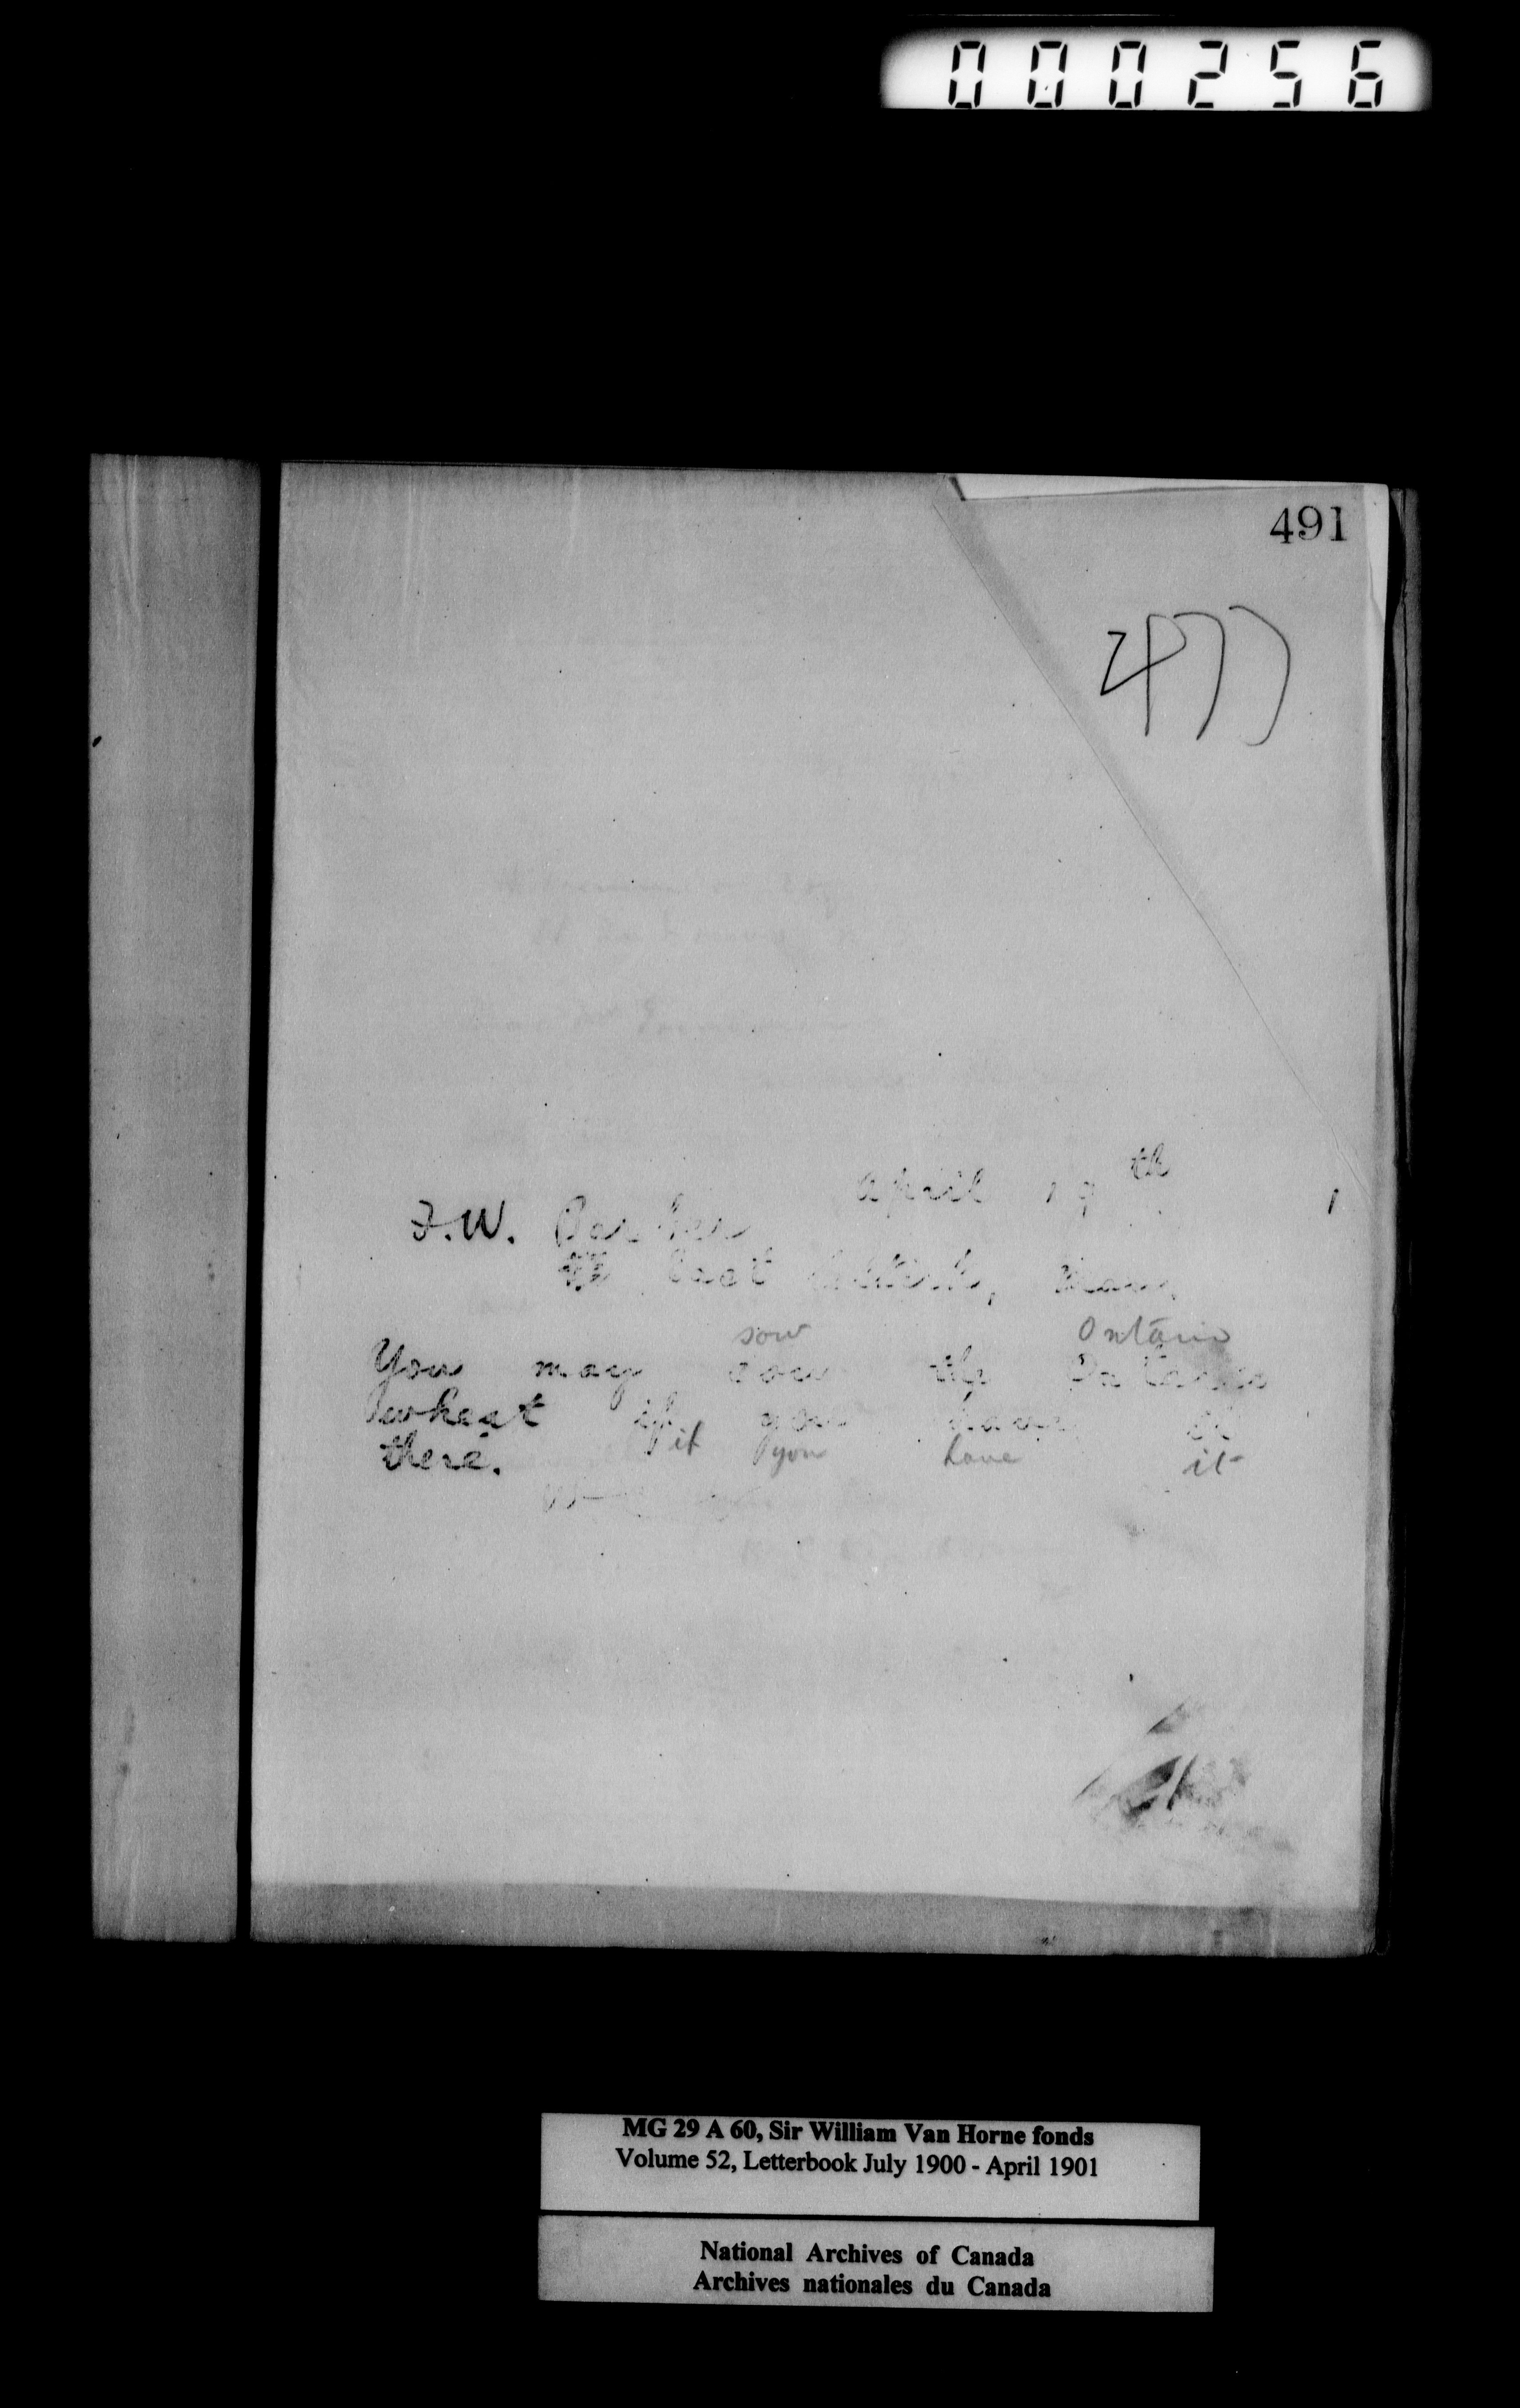 000256
491
477
April 19th 1
F.W. Barber
East Selkirk, Man.
sow Ontario
You may sow the Ontario
wheat if you have it
there. if you have it
MG 29 A 60, Sir William Van Horne fonds
Volume 52, Letterbook July 1900 - April 1901
National Archives of Canada
Archives nationales du Canada